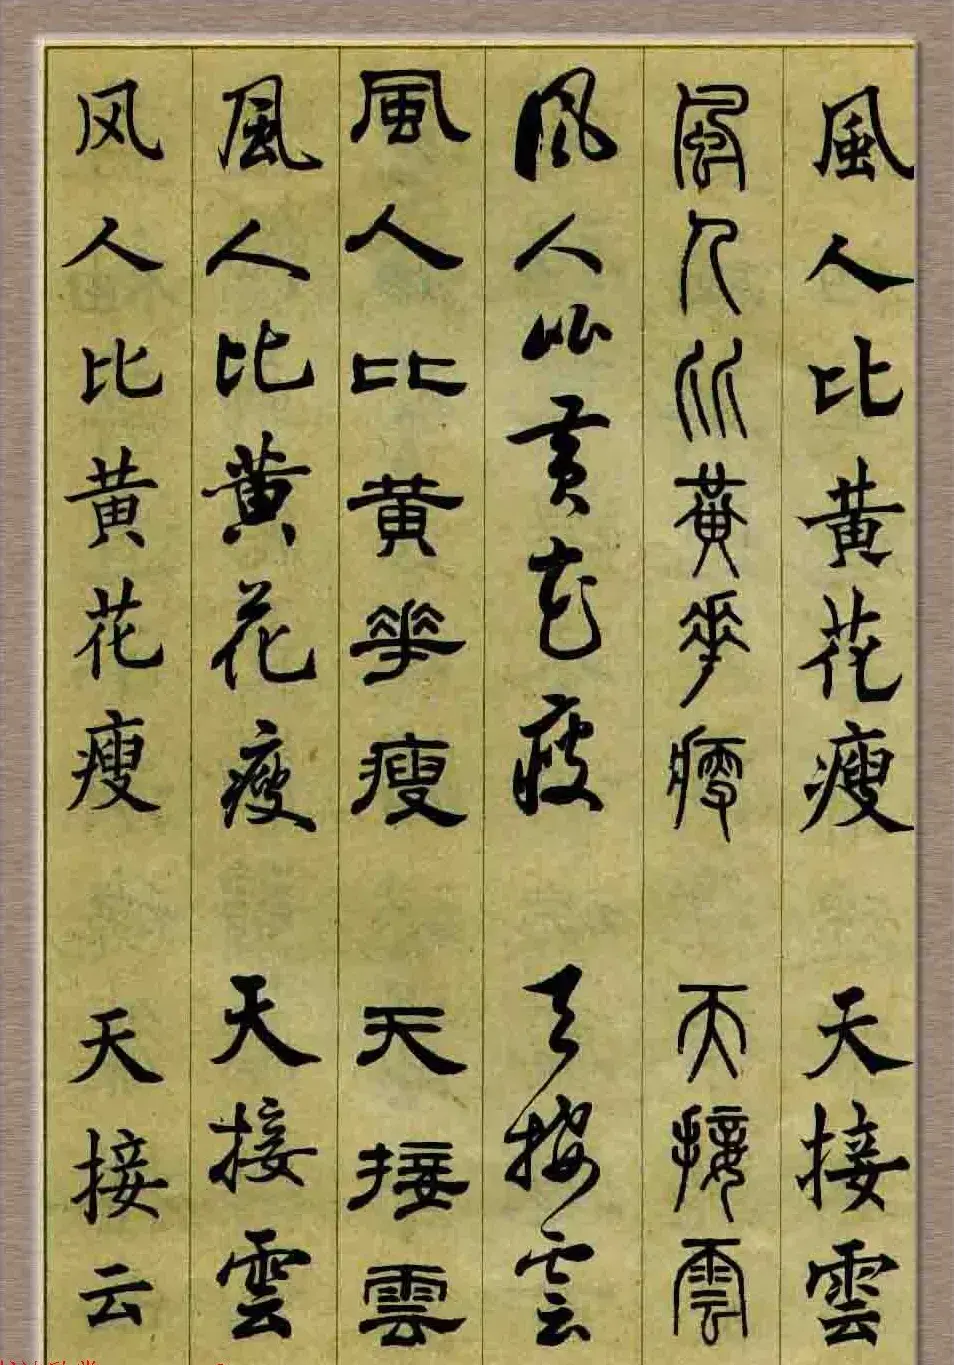 風人比黃花瘦 天接雲
風人比黃華瘦 天接雲
風人比黃花瘦 天接雲
風人比黃華瘦 天接雲
風人比黃花瘦 天接雲
风人比黄花瘦 天接云